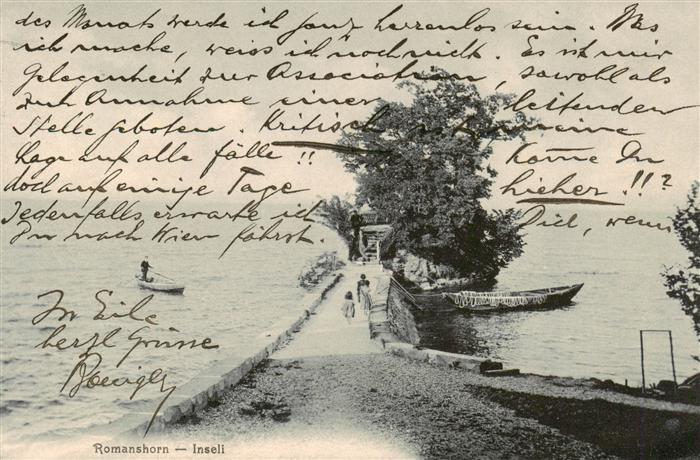 des Monats werde ich ganz herrenlos sein. Was
ich mache, weiss ich noch nicht. Es ist mir
Gelegenheit zur Association, sowohl als
zur Annahme einer leitenden
Stelle geboten. Kritisch ist meine
Lage auf alle fälle!! Komme Du
doch auf einige Tage hieher!!?
Jedenfalls erwarte ich Dich, wenn
Du nach Wien fährst.
In Eile
herzl Grüsse
Romanshorn — Inseli